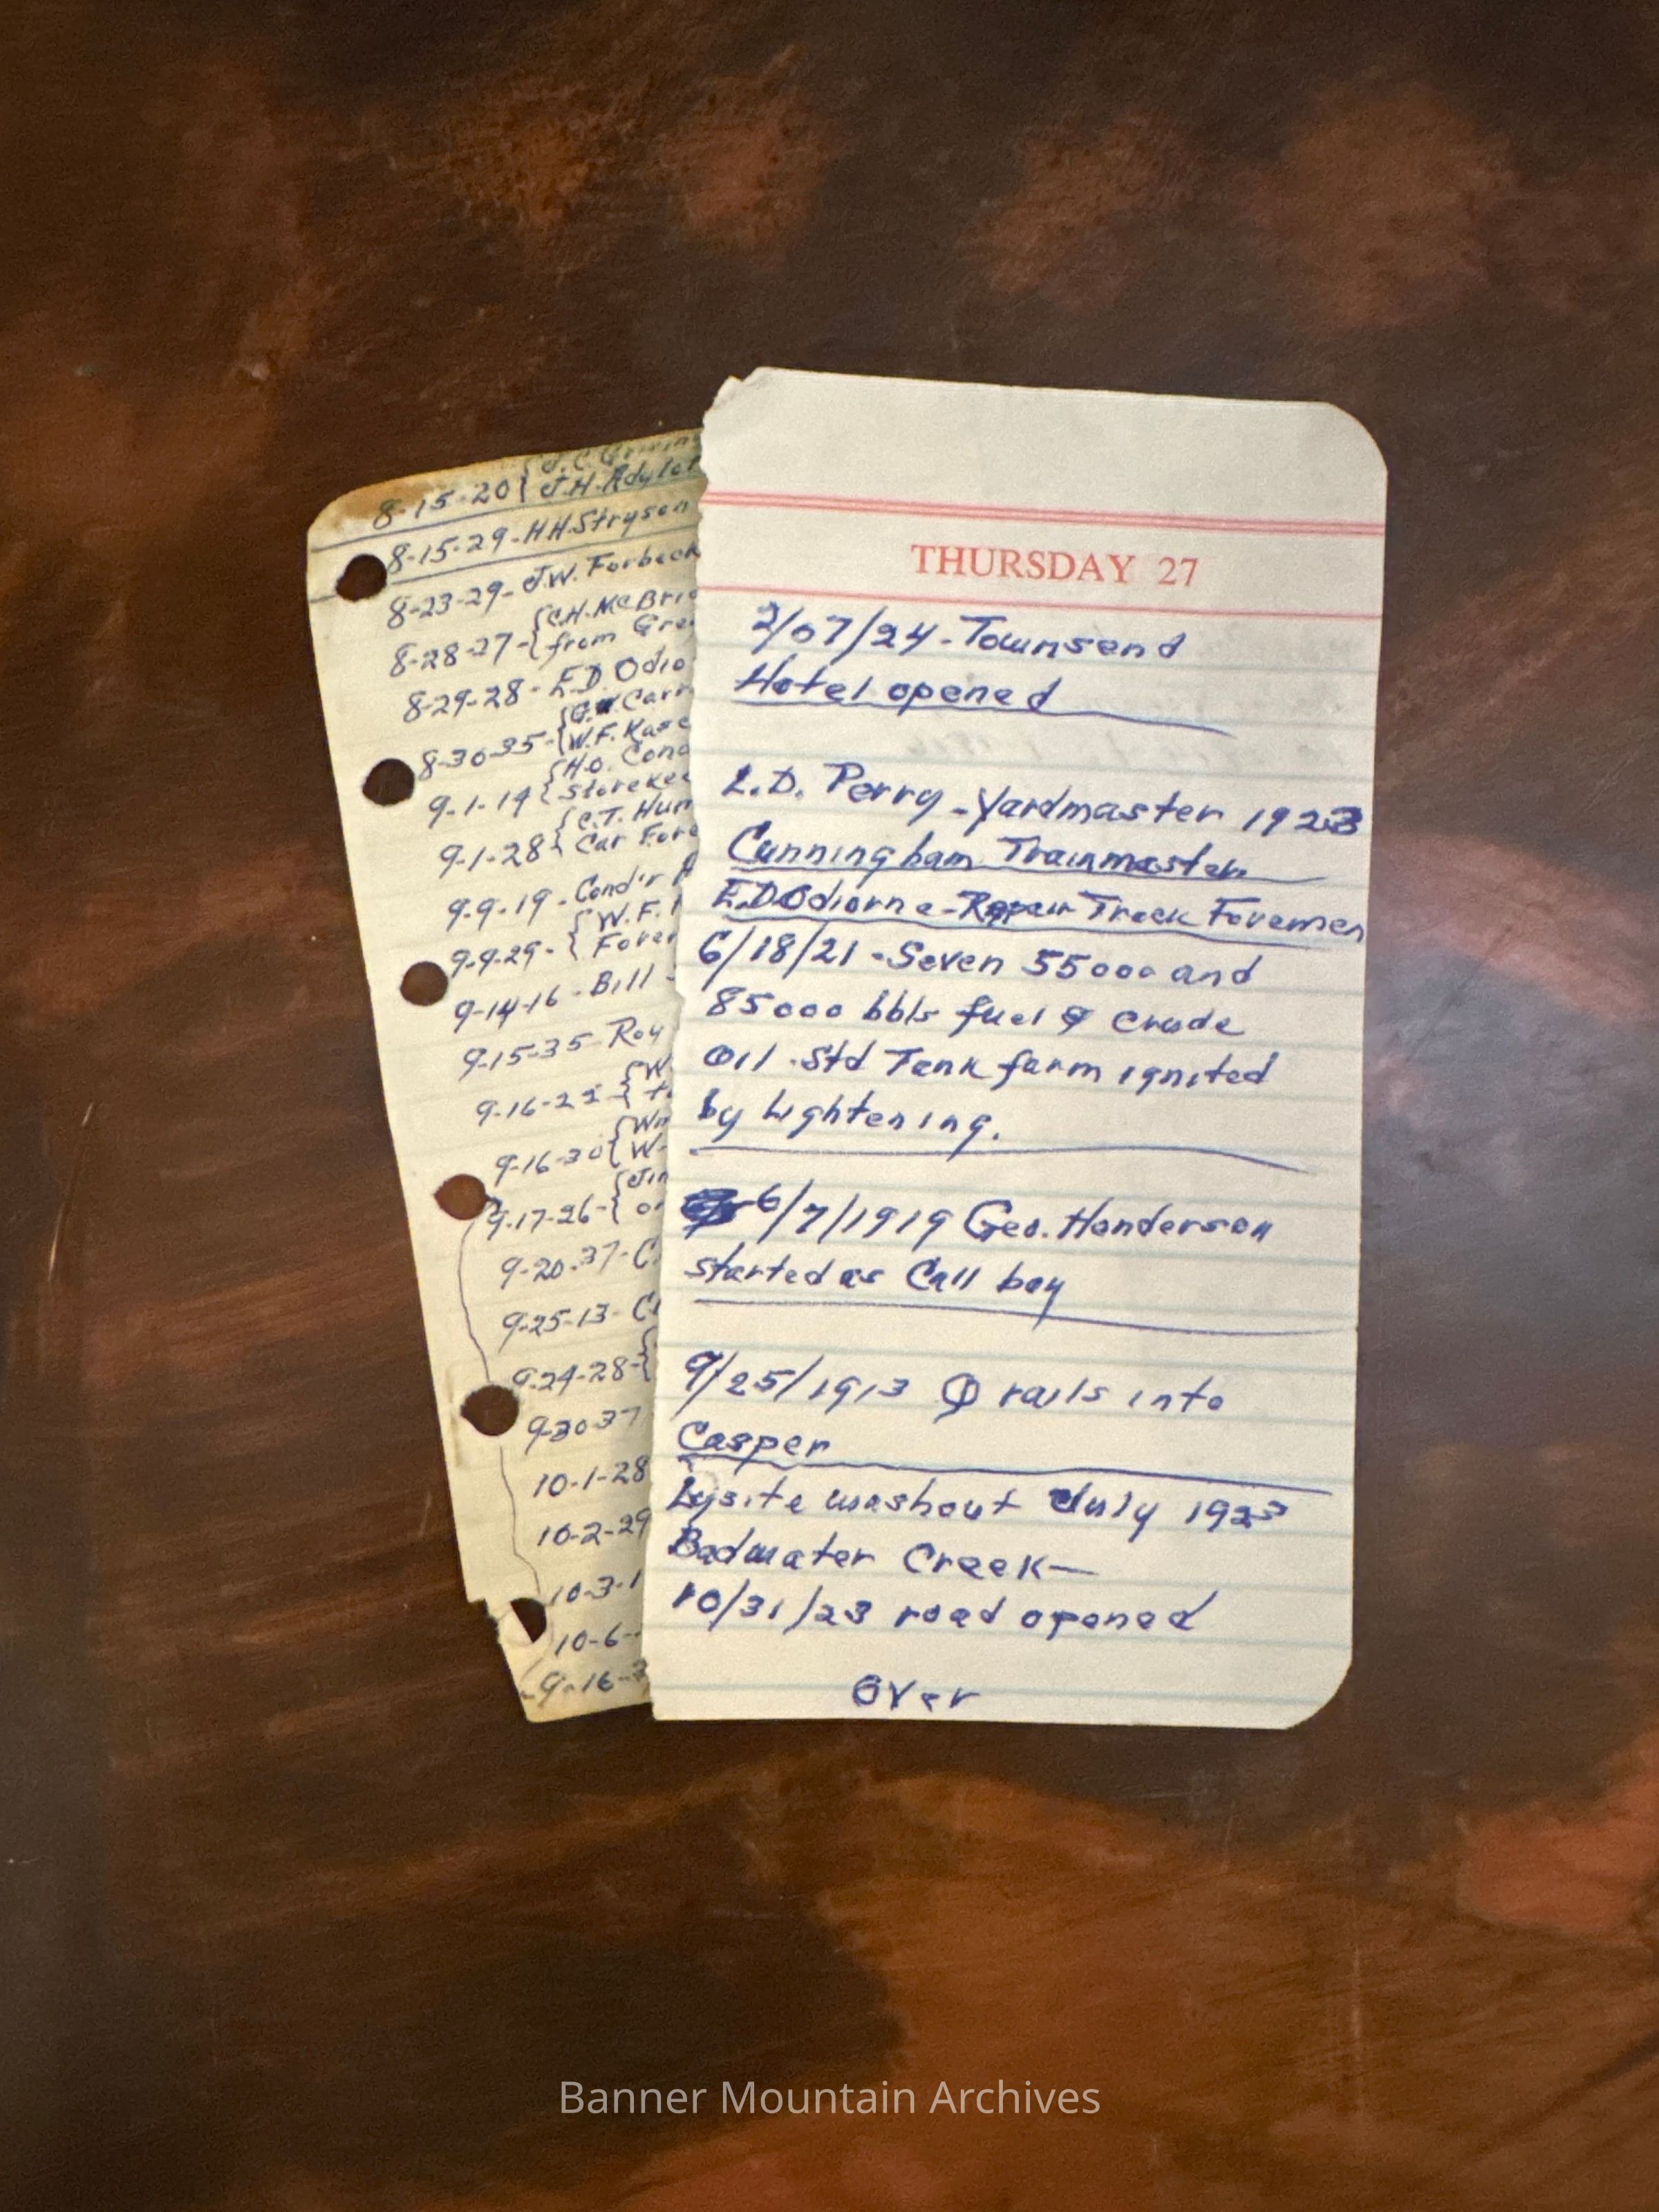 J.C.
8-15-20{ J.H. Adylot
8-15-29-HH.Stryson
8-23-29-J.W. Forbeck
{C.H. McBri
8-28-27-{from Gre
8-29-28-E.D Odio
{G.W Carr
8-30-35-{W.F. Kase
{H.O. Cond
9-1-14{Storekee
{C.T. Hun
9-1-28{ Car Fore
9-9-19-Cond'r
{W.F.
9-9-29-{Forem
9-14-16-Bill
9-15-35-Roy
{W
9-16-22-{t
{Wm
9-16-30{W-
{Jim
9-17-26-{or
9-20-37-C
9-25-13-C
9-24-28-{
9-30-37
10-1-28
10-2-29
10-3-1
10-6-
9-16-3
THURSDAY 27
2/07/24-Townsend
Hotel opened
L.D. Perry-Yardmaster 1923
Cunningham Trainmaster
E.D Odiorne-Repair Track Foremen
6/18/21-Seven 55000 and
85000 bbls fuel & crude
Oil-Std Tank farm ignited
by Lightening.
6/7/1919 Geo. Henderson
started as Call boy
9/25/1913 Q rails into
Casper
Lysite washout July 1923
Badwater Creek—
10/31/23 road opened
Over
Banner Mountain Archives